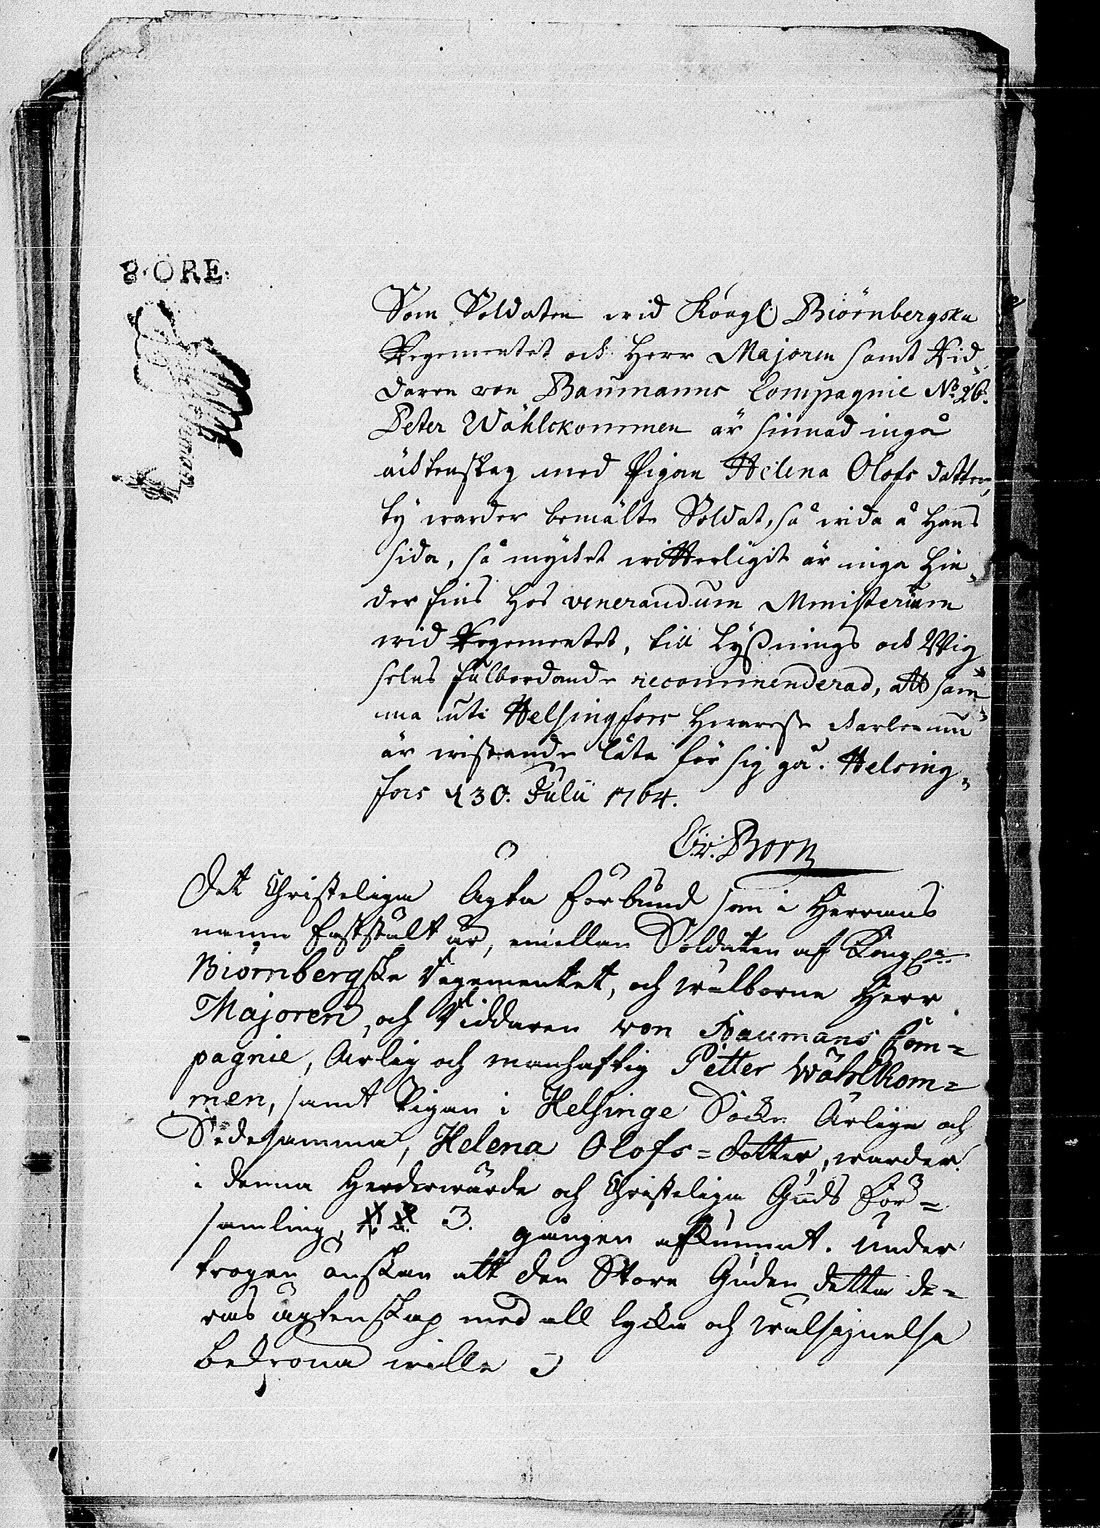 8·ÖRE·
Som Soldaten wid Kongl Biörnbergska
Regementet och Herr Majoren samt Rid
daren von Baumanns Compagnie No 26.
Peter Wählkommen är sinnad ingå
äcktenskap med Pigan Helena Olofs dotter,
ty warder bemälte Soldat, så wida å hans
sida, så mycket witterligit är inga hin
der fins hos venerandum Ministerium
wid Regementet, till Lyßnings och Wig
selns fulbordande recommenderad, att sam
ma uti Helsingfors hwarest
är wistande låta för sig gå. Helsing,
fors d 30. Julii 1764.
Born
Det Christeliga Ägta förbund som i Herrans
namn faststält är, emellan Soldaten af Kongl.
Biörnbergska Regementet, och wälborne Herr
Majoren, och Riddaren von Baumans Com=
pagnie, Ärlig och manhaftig Petter Wählkom=
men, samt Pigan i Helsinge Sockn Ärliga och
Sedesamma, Helena Olofs=dotter, warder
i denna Hederwärda och Christeliga Guds för=
samling, 3. gången afkunnat. Under
trogen önskan att den Store Guden detta de=
ras ägtenskap med all lycka och wälsignelse
bekröna wille